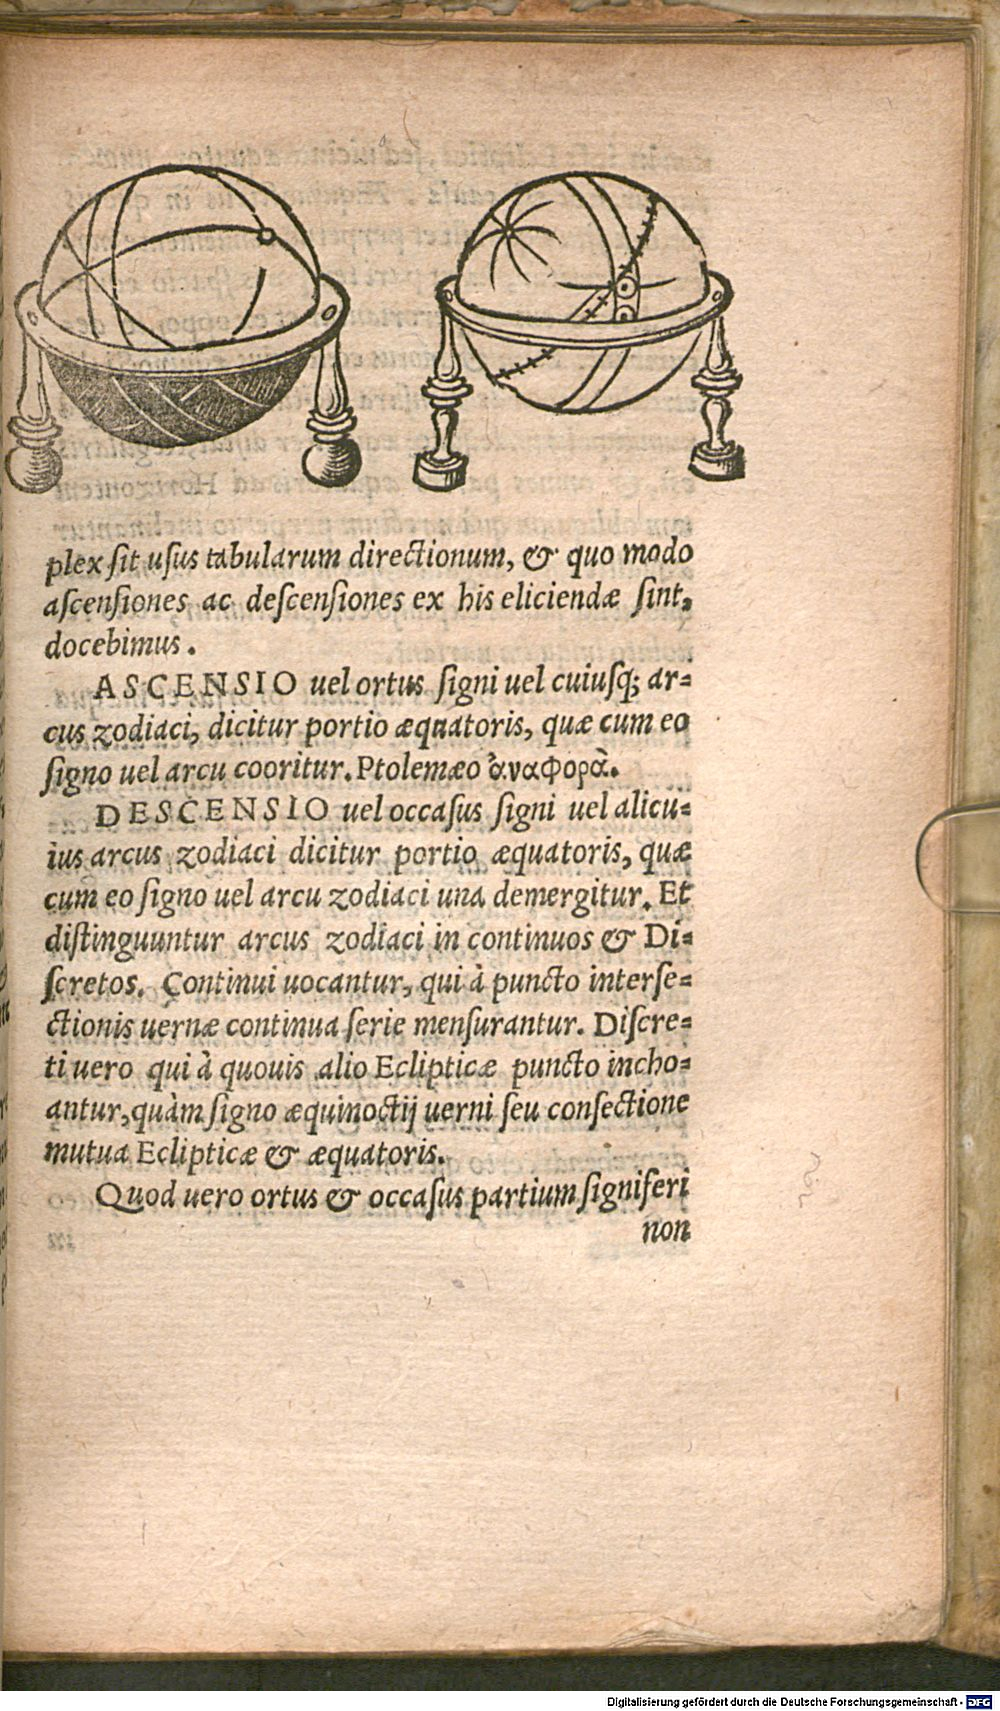 plex ſit uſus tabularum directionum, & quo modo
aſcenſiones ac deſcenſiones ex his eliciendæ ſint,
docebimus.
ASCENSIO uel ortus ſigni uel cuiuſq; ar-
cus zodiaci, dicitur portio æquatoris, quæ cum eo
ſigno uel arcu cooritur. Ptolemæo ἀναφορὰ.
DESCENSIO uel occaſus ſigni uel alicu-
ius arcus zodiaci dicitur portio æquatoris, quæ
cum eo ſigno uel arcu zodiaci una demergitur. Et
diſtinguuntur arcus zodiaci in continuos & Di-
ſcretos. Continui uocantur, qui à puncto interſe-
ctionis uernæ continua ſerie menſurantur. Diſcre-
ti uero qui à quouis alio Eclipticæ puncto incho-
antur, quàm ſigno æquinoctij uerni ſeu conſectione
mutua Eclipticæ & æquatoris.
Quod uero ortus & occaſus partium ſigniferi
non
Digitalisierung gefördert durch die Deutsche Forschungsgemeinschaft - DFG